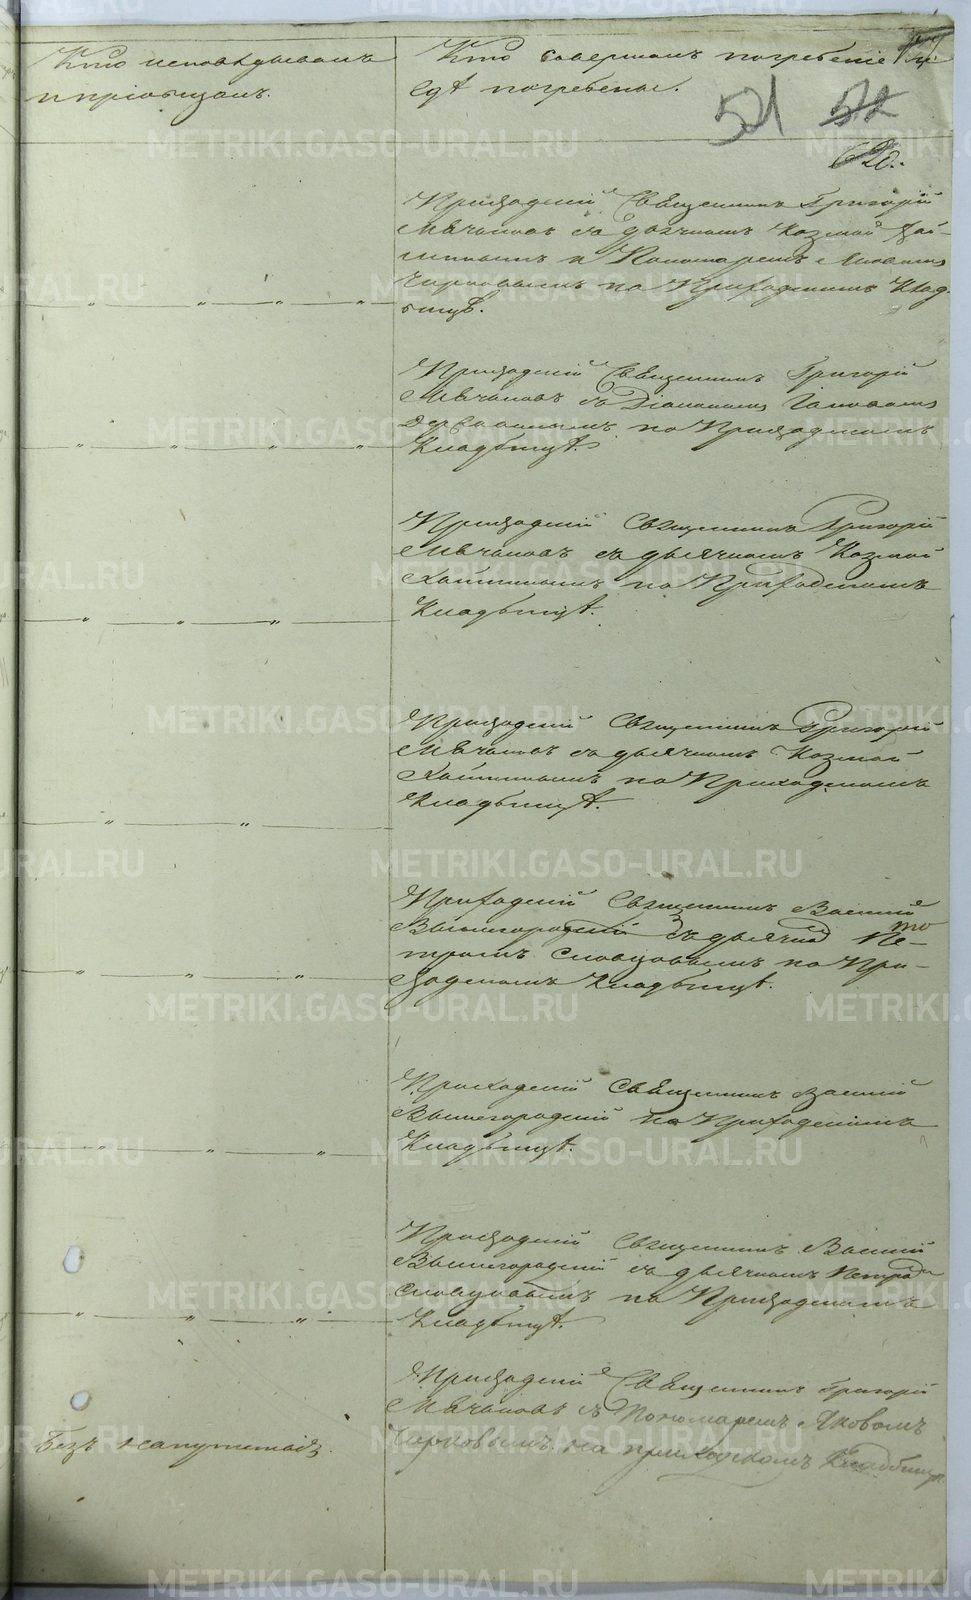 Кто исповѣдывалъ
и пріобщалъ.
Кто совершалъ погребеніе и
гдѣ погребены.
51 52
620.
Приходскій Священникъ Григорій
Мѣчановъ съ дьячкомъ Козмой
и Пономаремъ Яковомъ
Чирковымъ на Приходскомъ Клад-
бищѣ.
Приходскій Священникъ Григорій
Мѣчановъ съ Діакономъ
на Приходскомъ
Кладбищѣ.
Приходскій Священникъ Григорій
Мѣчановъ съ дьячкомъ Козмой
на Приходскомъ
Кладбищѣ.
Приходскій Священникъ Григорій
Мѣчановъ съ дьячкомъ Козмой
на Приходскомъ
Кладбищѣ.
Приходскій Священникъ Василій
Вышегородскій съ дьячко Пе-
тромъ Словцовымъ на При-
ходскомъ Кладбищѣ.
Приходскій Священникъ Василій
Вышегородскій на Приходскомъ
Кладбищѣ.
Приходскій Священникъ Василій
Вышегородскій съ дьячкомъ
Словцовымъ на Приходскомъ
Кладбищѣ.
Приходскій Священникъ Григорій
Мѣчановъ съ Пономаремъ Яковомъ
Чирковымъ на приходскомъ Кладбищѣ
Безъ напутствія.
METRIKI.GASO-URAL.RU